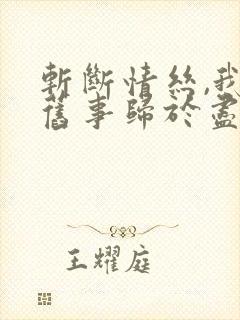 斬斷情絲,我
舊事歸於盡
王耀庭